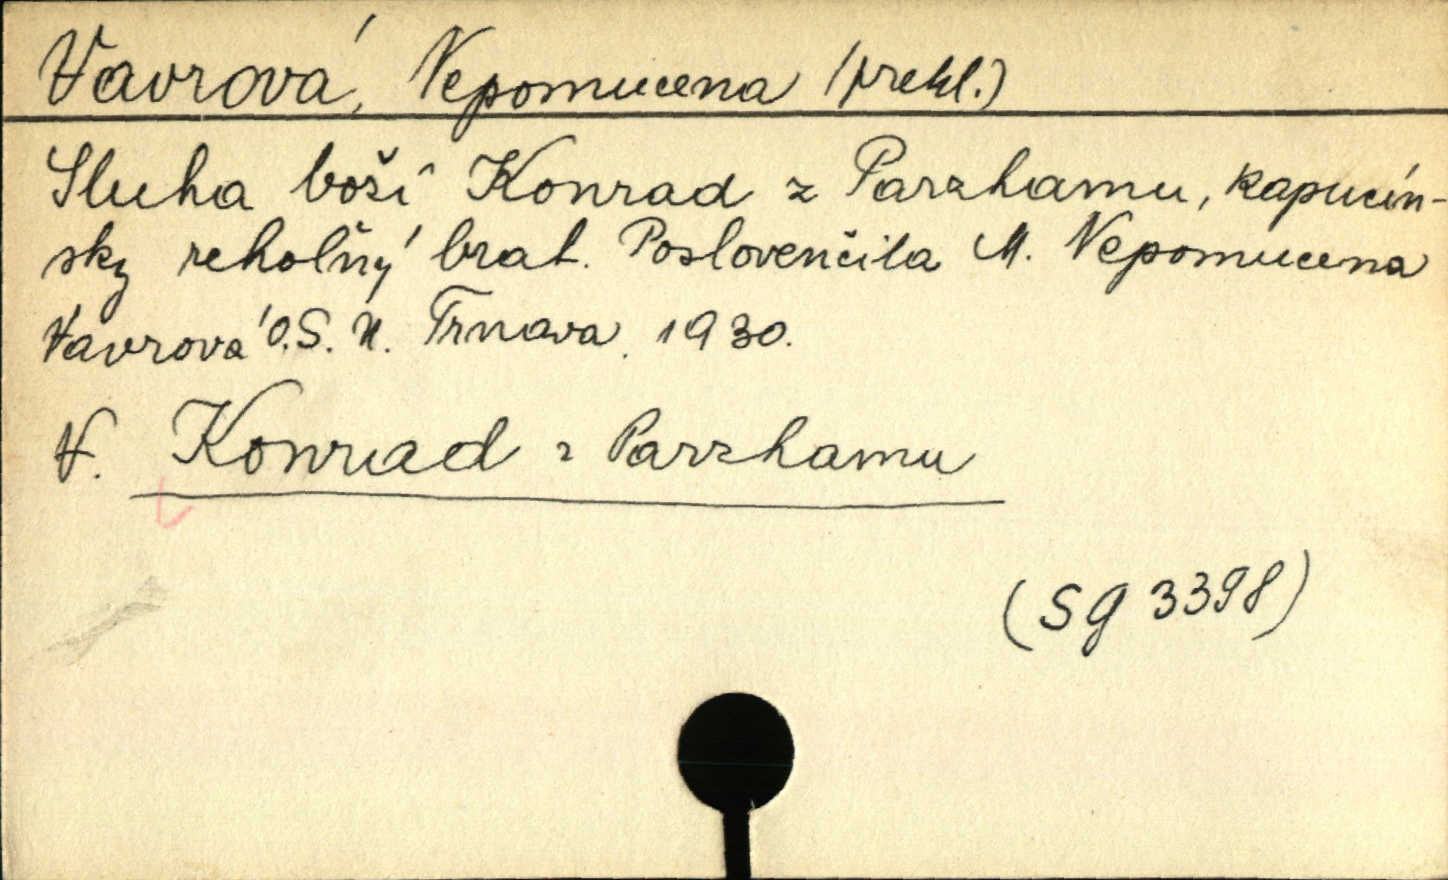 Vavrová, Nepomucena (prekl.)
Sluha boží Konrad z Parzhamu, kapucín-
sky reholný brat. Poslovenčila M. Nepomucena
Vavrová O.S.U. Trnava. 1930.
V. Konrad z Parzhamu
(SG 3398)